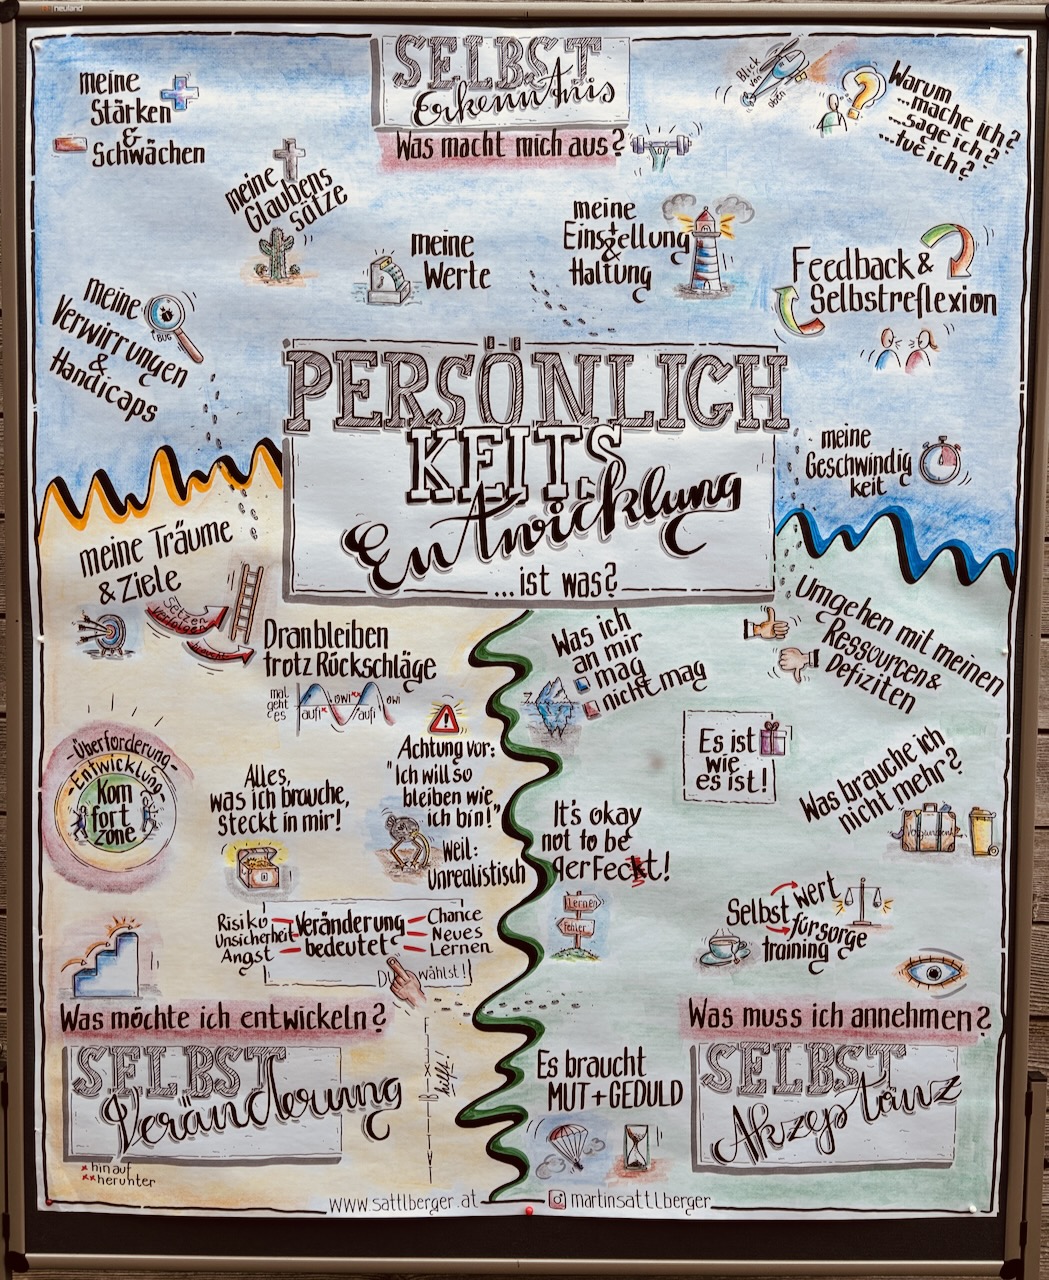 neuland
SELBST
Erkenntnis
Was macht mich aus?
meine
Stärken
&
Schwächen
meine
Glaubens
sätze
meine
Werte
meine
Einstellung
&
Haltung
Blick
von
oben
Warum
...mache ich?
...sage ich?
...tue ich?
Feedback &
Selbstreflexion
meine
Verwirrungen
&
Handicaps
BUG
meine
Geschwindig
keit
PERSÖNLICH
KEITS
Entwicklung
...ist was?
meine Träume
& Ziele
Setzen
verfolgen
Dranbleiben
trotz Rückschläge
mal
geht
es
aufi*
owi**
aufi
owi
Überforderung
Entwicklung
Kom
fort
zone
Alles,
was ich brauche,
steckt in mir!
Achtung vor:
"Ich will so
bleiben wie
ich bin!"
Weil:
Unrealistisch
Risiko
Unsicherheit
Angst
Veränderung
bedeutet
Chance
Neues
Lernen
Du wählst!
Was möchte ich entwickeln?
SELBST
Veränderung
*hinauf
**herunter
hilft!
Was ich
an mir
mag
nicht mag
Umgehen mit meinen
Ressourcen &
Defiziten
Es ist
wie
es ist!
Was brauche ich
nicht mehr?
Vergangenheit
It's okay
not to be
qerfeckt!
Lernen
Fehler
Selbst
wert
fürsorge
training
Was muss ich annehmen?
SELBST
Akzeptanz
Es braucht
MUT + GEDULD
www.sattlberger.at
martinsattlberger